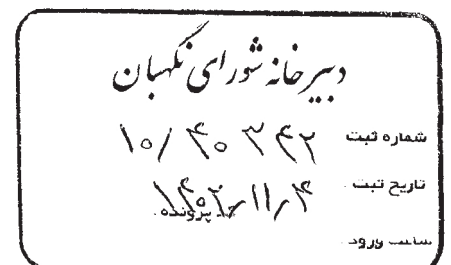 دبیرخانه شورای نگهبان
شماره ثبت ۱۰/۴۰۳۴۲
تاریخ ثبت ۱۴۰۲/۱۱/۴
پرونده
ساعت ورود